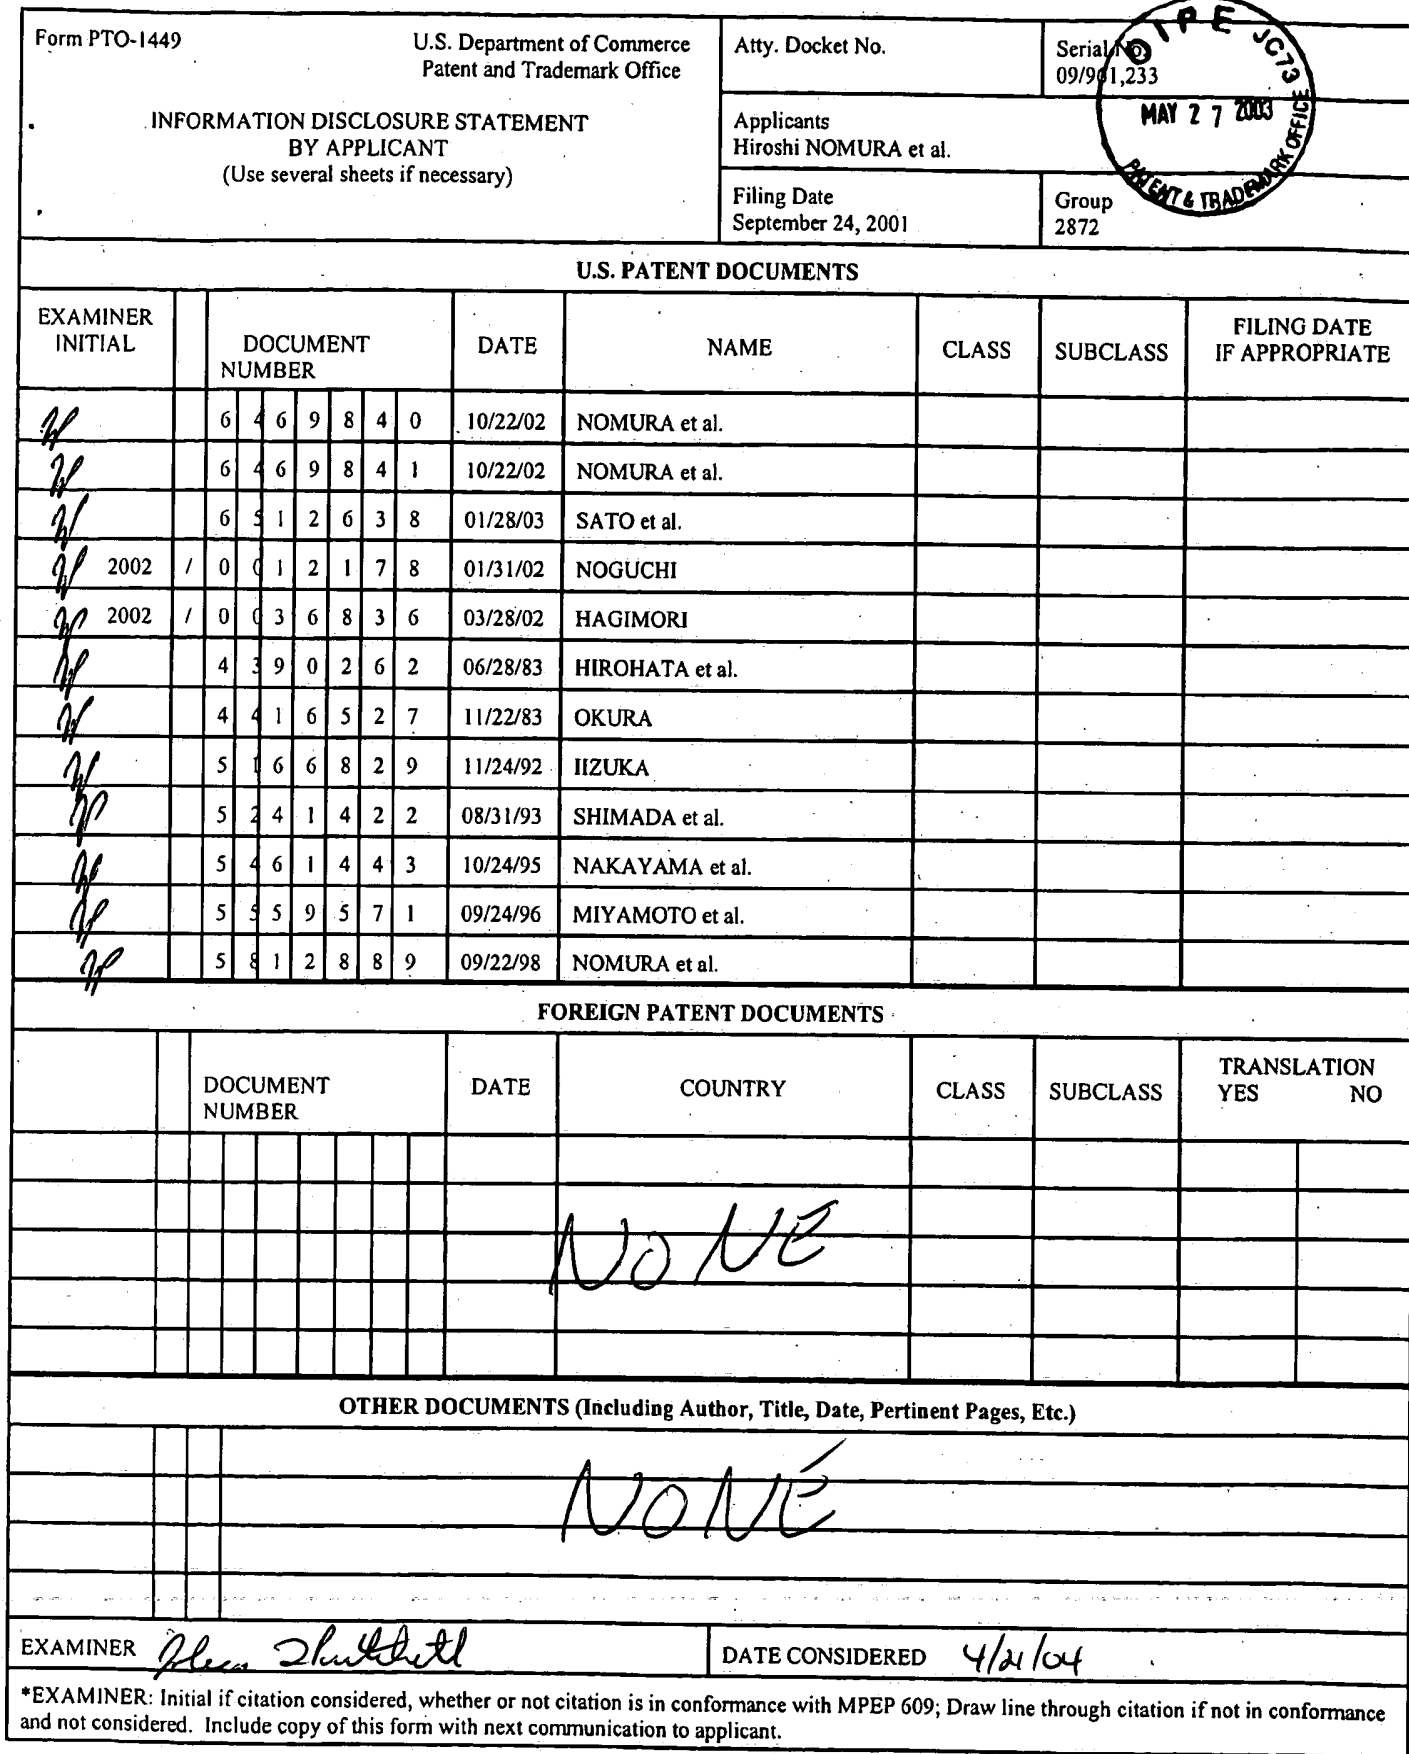 Form PTO-1449
U.S. Department of Commerce
Patent and Trademark Office
INFORMATION DISCLOSURE STATEMENT
BY APPLICANT
(Use several sheets if necessary)
Atty. Docket No.
Serial No.
09/961,233
Applicants
Hiroshi NOMURA et al.
Filing Date
September 24, 2001
Group
2872
OIPE JC73
MAY 27 2003
PATENT & TRADEMARK OFFICE
U.S. PATENT DOCUMENTS
EXAMINER INITIAL DOCUMENT NUMBER DATE NAME CLASS SUBCLASS FILING DATE IF APPROPRIATE
6 4 6 9 8 4 0 10/22/02 NOMURA et al.
6 4 6 9 8 4 1 10/22/02 NOMURA et al.
6 5 1 2 6 3 8 01/28/03 SATO et al.
2002 / 0 0 1 2 1 7 8 01/31/02 NOGUCHI
2002 / 0 0 3 6 8 3 6 03/28/02 HAGIMORI
4 3 9 0 2 6 2 06/28/83 HIROHATA et al.
4 4 1 6 5 2 7 11/22/83 OKURA
5 1 6 6 8 2 9 11/24/92 IIZUKA
5 2 4 1 4 2 2 08/31/93 SHIMADA et al.
5 4 6 1 4 4 3 10/24/95 NAKAYAMA et al.
5 5 5 9 5 7 1 09/24/96 MIYAMOTO et al.
5 8 1 2 8 8 9 09/22/98 NOMURA et al.
FOREIGN PATENT DOCUMENTS
DOCUMENT NUMBER DATE COUNTRY CLASS SUBCLASS TRANSLATION YES NO
NONE
OTHER DOCUMENTS (Including Author, Title, Date, Pertinent Pages, Etc.)
NONE
EXAMINER
DATE CONSIDERED 4/21/04
*EXAMINER: Initial if citation considered, whether or not citation is in conformance with MPEP 609; Draw line through citation if not in conformance
and not considered. Include copy of this form with next communication to applicant.